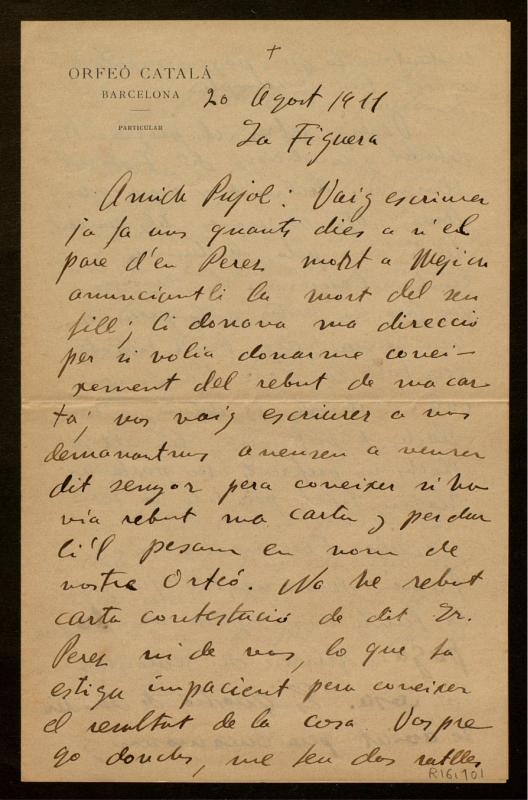 +
ORFEÓ CATALÁ
BARCELONA
PARTICULAR
20 Agost 1911
La Figuera
Amich Pujol: Vaig escriurer
ja fa uns quants dies a n'el
pare d'en Perez mort a Mejich
anunciantli la mort del seu
fill; li donava ma direcció
per si volia donarme conei-
xement del rebut de ma car-
ta; vos vaig escriurer a vos
demanantvos anessen a veurer
dit senyor pera coneixer si ha-
via rebut ma carta y per dar
li'l pesam en nom de
nostre Orfeó. No he rebut
carta contestació de dit Sr.
Perez ni de vos, lo que fa
estiga impacient pera coneixer
el resultat de la cosa. Vos pre
go donchs, me feu dos ratlles
R161901